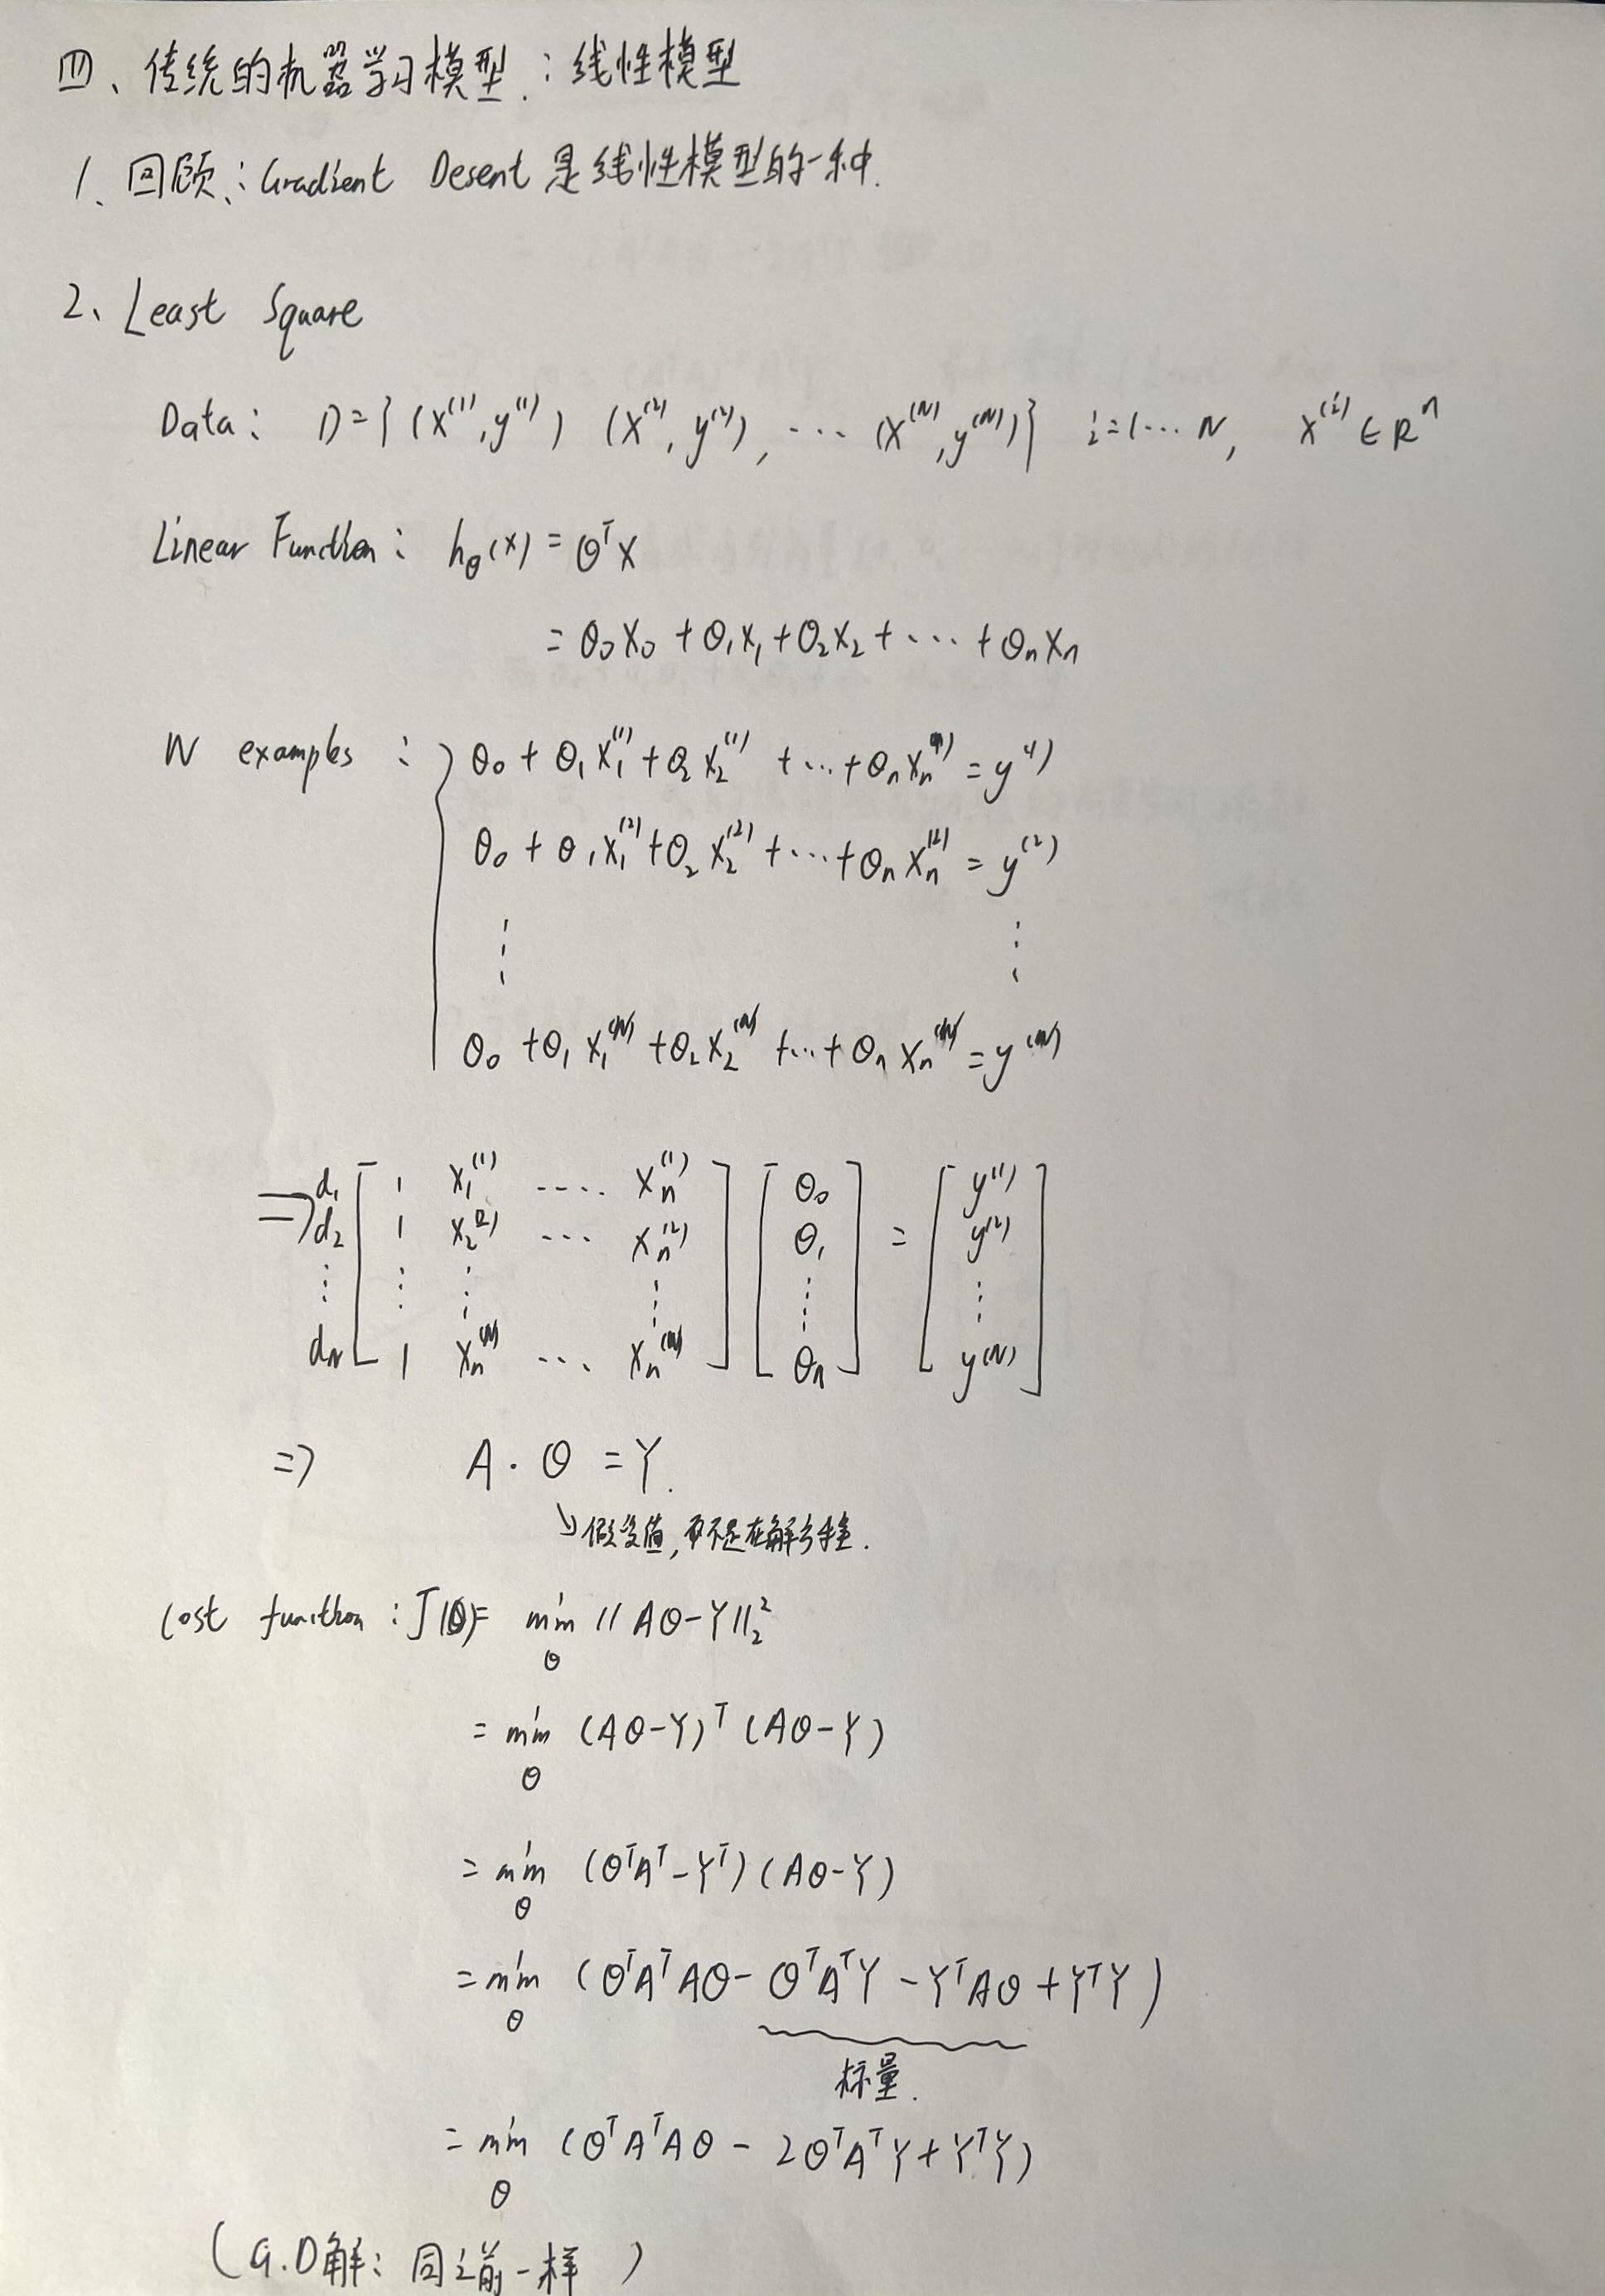 四、传统的机器学习模型.：线性模型
1、回顾：Gradient Desent 是线性模型的一种.
2、Least Square
Data： D={(x^(1),y^(1)) (x^(2),y^(2)),…(x^(N),y^(N))} i=1…N, x^(i)∈R^n
Linear Function： h_θ(x)=θ^T x
=θ_0x_0+θ_1x_1+θ_2x_2+…+θ_nx_n
N examples： { θ_0+θ_1x_1^(1)+θ_2x_2^(1)+…+θ_nx_n^(1)=y^(1)
θ_0+θ_1x_1^(2)+θ_2x_2^(2)+…+θ_nx_n^(2)=y^(2)
⋮ ⋮
θ_0+θ_1x_1^(N)+θ_2x_2^(N)+…+θ_nx_n^(N)=y^(N)
⇒ d_1 [ 1 x_1^(1) …. x_n^(1) ] [ θ_0 ] = [ y^(1) ]
d_2 1 x_2^(2) … x_n^(2) θ_1 y^(2)
⋮ ⋮ ⋮ ⋮ ⋮ ⋮
d_N 1 x_n^(N) … x_n^(N) θ_n y^(N)
⇒ A·θ=Y.
↘假设值,而不是在解方程.
Cost function：J(θ)= min_θ ||Aθ-Y||_2^2
= min_θ (Aθ-Y)^T(Aθ-Y)
= min_θ (θ^TA^T-Y^T)(Aθ-Y)
= min_θ (θ^TA^TAθ-θ^TA^TY-Y^TAθ+Y^TY)
标量.
= min_θ (θ^TA^TAθ-2θ^TA^TY+Y^TY)
(G.D解：同之前一样)